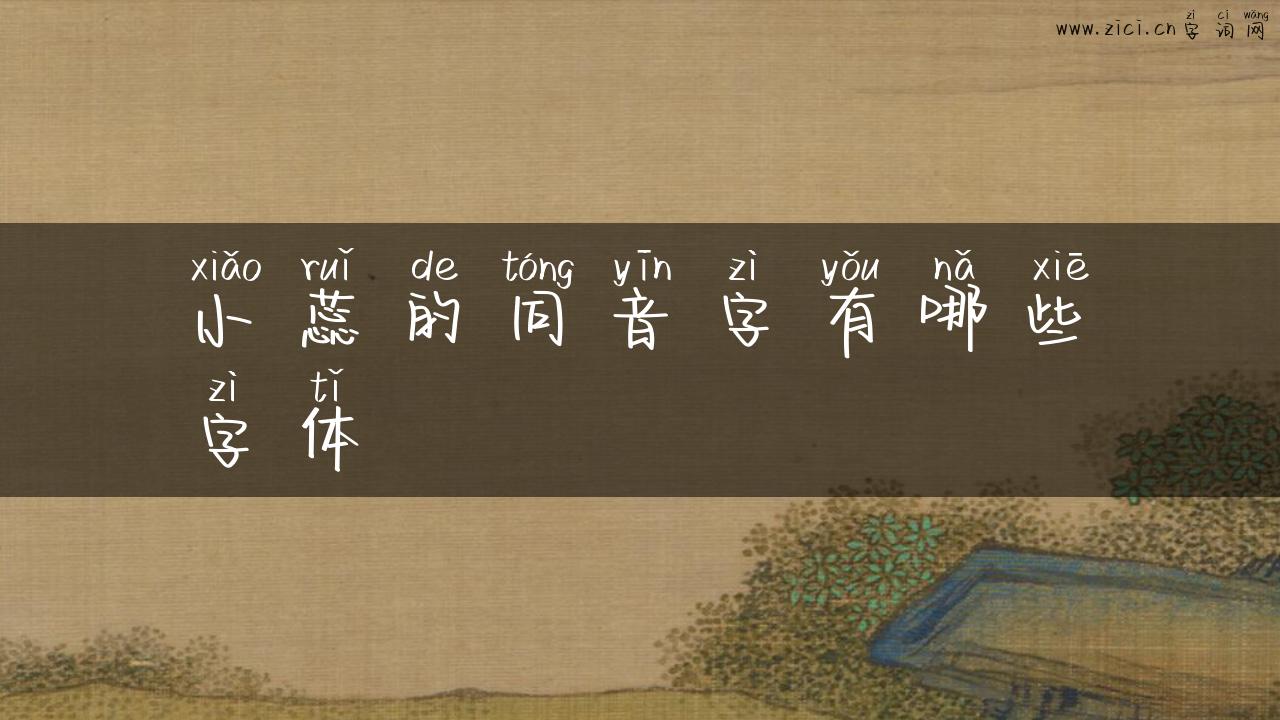 zì cí wǎng
www.zici.cn 字词网
xiǎo ruǐ de tóng yīn zì yǒu nǎ xiē
小蕊的同音字有哪些
zì tǐ
字体